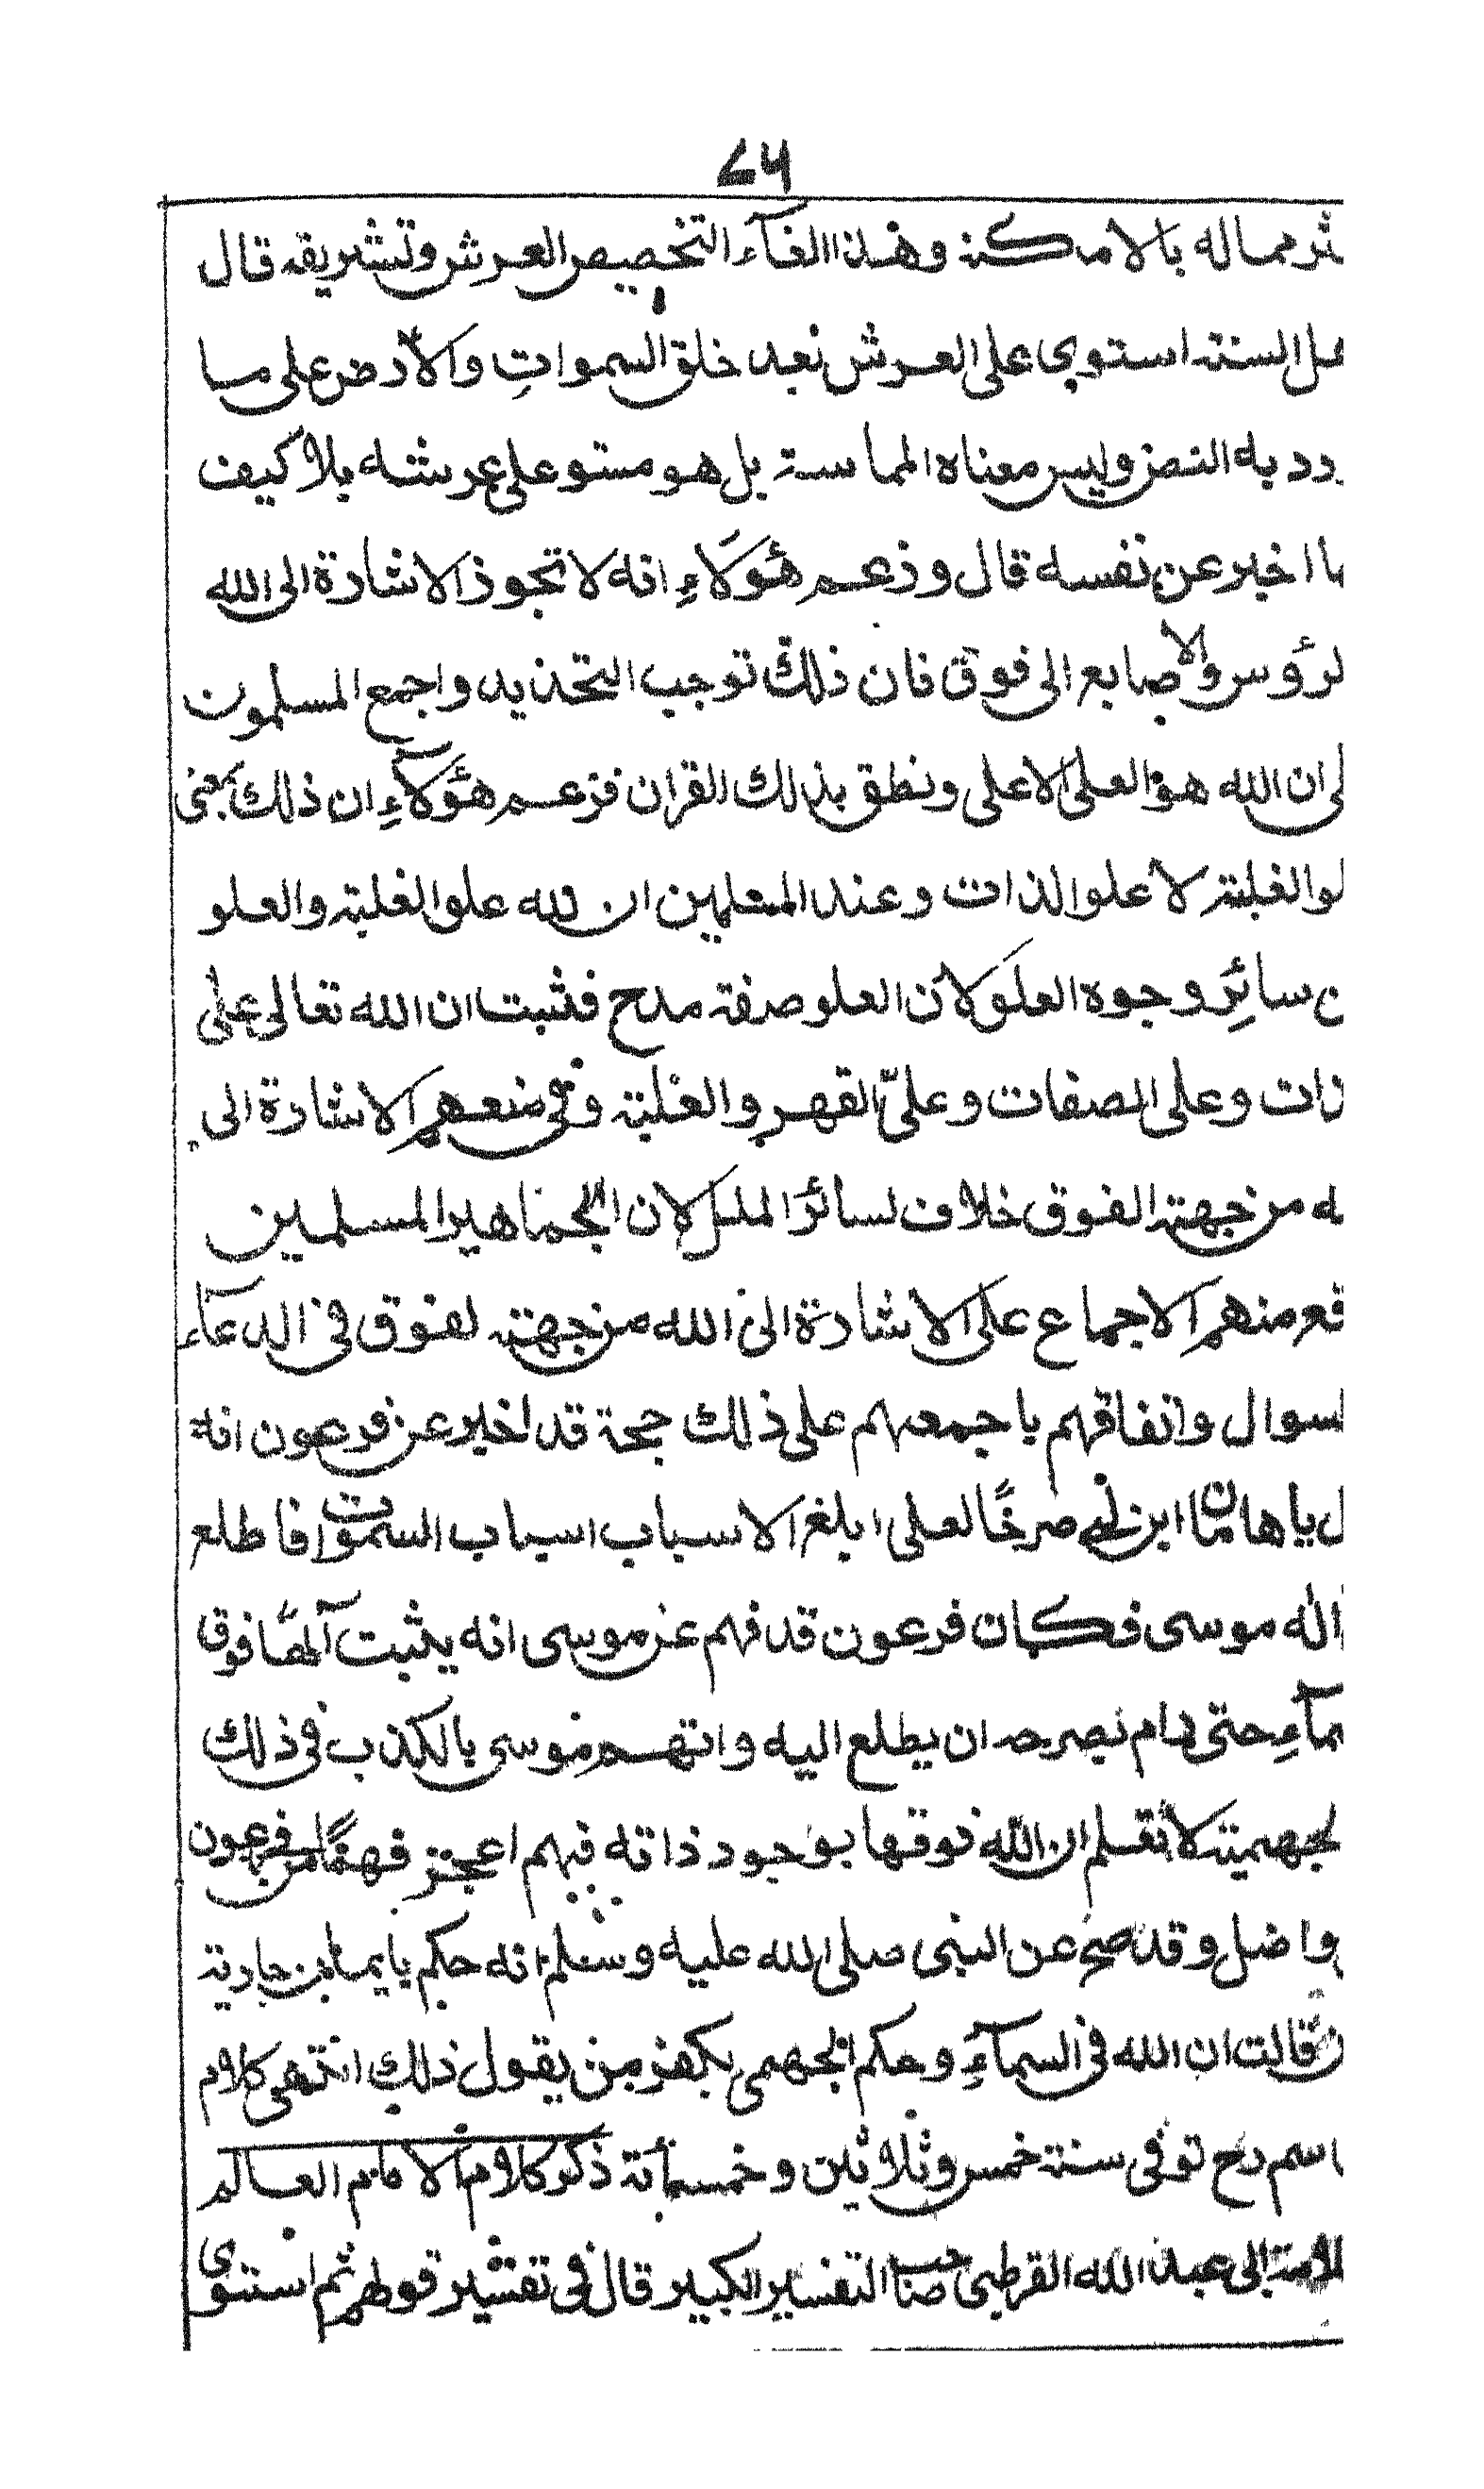 ۷۶
ثر مماله بالامكنة وهذا الغآء التخصيص العرش وتشريقه قال
هل السنته استوى على العرش نعبد خلق السموات والأرض على ما
ورد به النص وليس معناه المماسة بل هو مستو على عرشه بلا كيف
ما اخبر عن نفسه قال وزعم هؤلاء انه لا تجوز الاشارة الى الله
لرؤس والاصابع الى فوق فان ذلك توجب التحذيد واجمع المسلمون
لى ان الله هو العلى الاعلى ونطق بذلك القران فزعم هؤلاء ان ذلك بمعنى
لو الغلبة لا علو الذات وعند المسلمين ان لله علو الغلبة والعلو
ن سائر وجوه العلو لان العلو صفة مدح فثبت ان الله تعالى على
ذات وعلى الصفات وعلى القهر والغلبة وفى منعهم الاشارة الى
له من جهة الفوق خلاف لسائر الملل لان الجماهير المسلمين
قع منهم الاجماع على الاشارة الى الله من جهة لفوق فى الدعآء
لسوال واتفاقهم باجمعهم على ذلك حجة قد اخبر عن فرعون انه
ل ياهامان ابن لى صرحًا لعلى ابلغ الاسباب اسباب السموات فاطلع
اله موسى فكان فرعون قد فهم عن موسى انه يثبت الهًا فوق
مآء حتى رام بصرحه ان يطلع اليه واتهم موسى بالكذب فى ذلك
لجهمية لا تعلم ان الله فوقها بوجود ذاته فهم اعجز فهمًا من فرعون
واضل وقد صح عن النبى صلى الله عليه وسلم انه حكم بايمان جارية
ن قالت ان الله فى السمآء وحكم الجهمى بكفر من يقول ذلك انتهى كلام
اسم رح توفى سنة خمس وثلاثين وخمسمأة ذكر كلام الامام العالم
لامة ابى عبد الله القرطبى صاحب التفسير الكبير قال فى تفسير قولهم ثم استوى